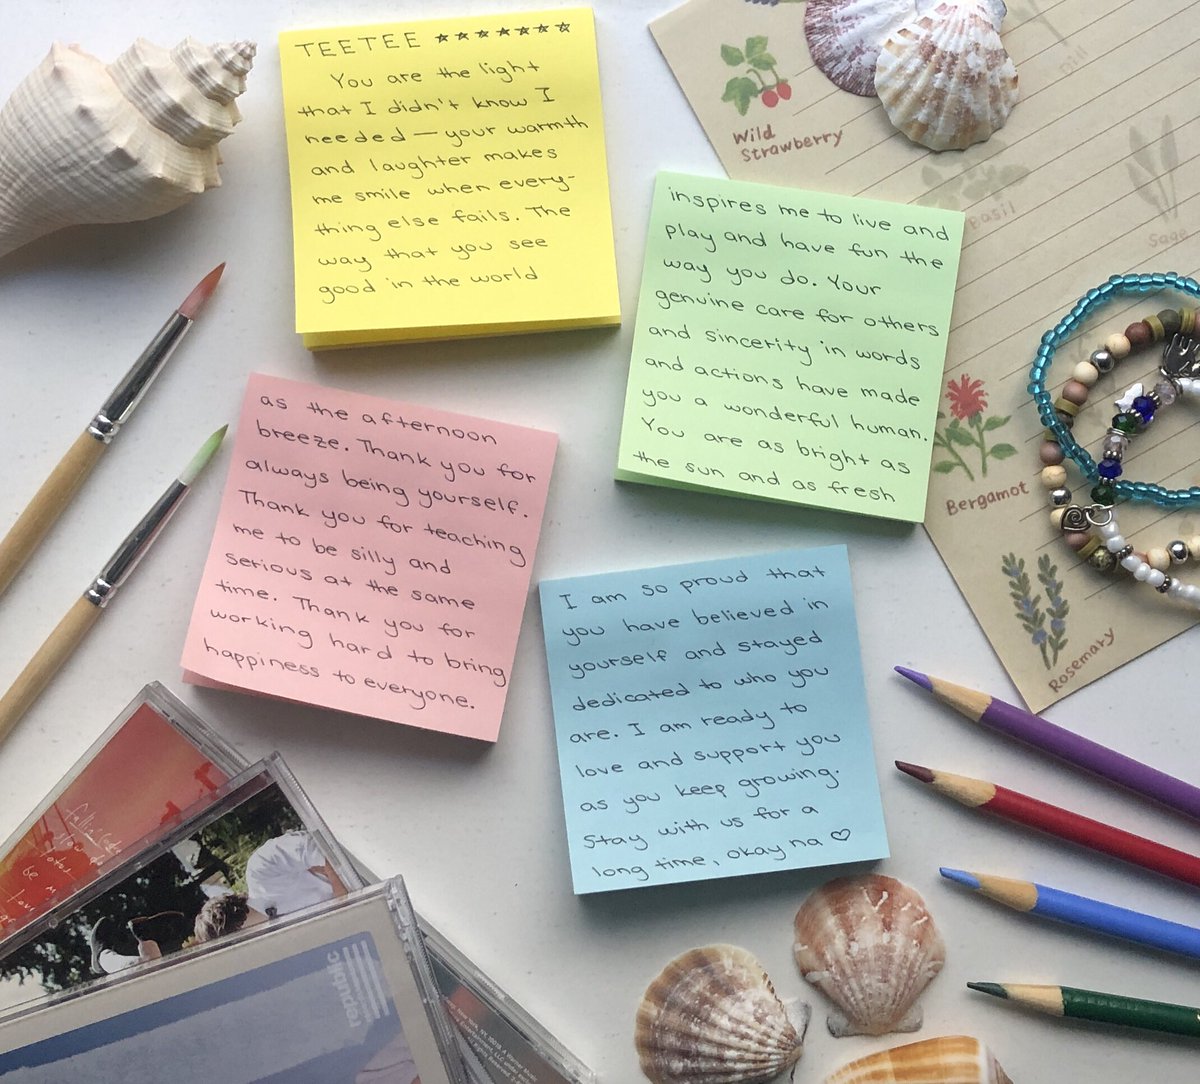 TEETEE ★★★★★★★
You are the light
that I didn't know I
needed — your warmth
and laughter makes
me smile when every-
thing else fails. The
way that you see
good in the world
inspires me to live and
play and have fun the
way you do. Your
genuine care for others
and sincerity in words
and actions have made
you a wonderful human.
You are as bright as
the sun and as fresh
as the afternoon
breeze. Thank you for
always being yourself.
Thank you for teaching
me to be silly and
serious at the same
time. Thank you for
working hard to bring
happiness to everyone.
I am so proud that
you have believed in
yourself and stayed
dedicated to who you
are. I am ready to
love and support you
as you keep growing.
Stay with us for a
long time, okay na ♡
Wild
Strawberry
Dill
Basil
Sage
Bergamot
Rosemary
republic